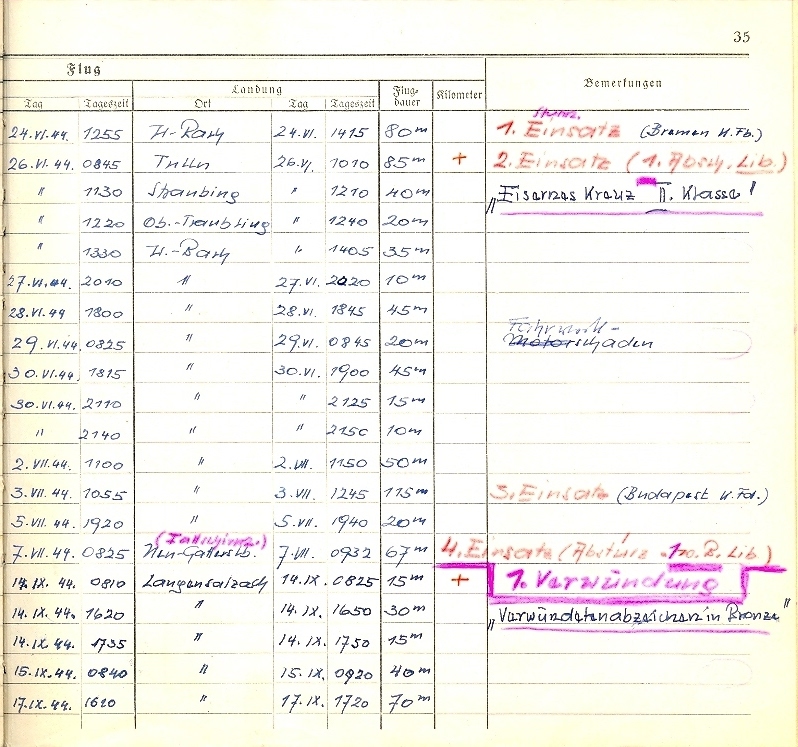 35
Flug
Landung
Flug-
dauer
Kilometer
Bemerkungen
Tag Tageszeit Ort Tag Tageszeit
24.VI.44. 1255 24.VI. 1415 80m 1. Einsatz (Bremen
26.VI.44 0845 Tulln 26.VI. 1010 85m + 2. Einsatz (1. Absch. Lib.)
" 1130 Straubing " 1210 40m "Eisernes Kreuz II. Klasse"
" 1220 Ob.-Traubling " 1240 20m
" 1330 " 1405 35m
27.VI.44. 2010 " 27.VI. 2020 10m
28.VI.44 1800 " 28.VI. 1845 45m
Fahrwerk-
29.VI.44. 0825 " 29.VI. 0845 20m Motorschaden
30.VI.44. 1815 " 30.VI. 1900 45m
30.VI.44. 2110 " " 2125 15m
" 2140 " 2150 10m
2.VII.44. 1100 " 2.VII. 1150 50m
3.VII.44. 1055 " 3.VII. 1245 115m 3. Einsatz (Budapest
5.VII.44. 1920 " 5.VII. 1940 20m
7.VII.44. 0825 7.VII. 0932 67m 4. Einsatz (Abstürz Lib)
14.IX.44. 0810 Langensalzach 14.IX. 0825 15m + 1. Verwündung
14.IX.44. 1620 " 14.IX. 1650 30m "Verwündetenabzeichen in Bronze"
14.IX.44. 1735 " 14.IX. 1750 15m
15.IX.44. 0840 " 15.IX. 0920 40m
17.IX.44. 1610 " 17.IX. 1720 70m